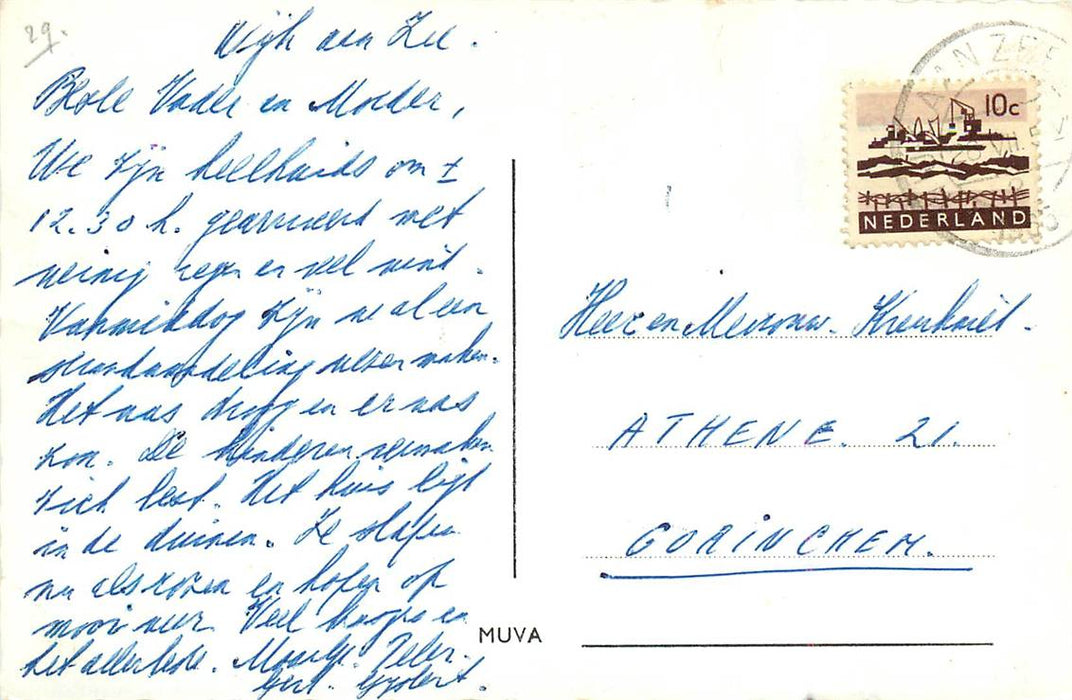 29.
Wijk aan Zee.
Beste Vader en Moeder,
We zijn heelhuids om ±
12.30 h. gearriveerd met
weinig regen en veel wind.
Vanmiddag zijn we al een
strandwandeling wezen maken.
Het was droog en er was
zon. De kinderen vermaken
zich best. Het huis ligt
in de duinen. Ze slapen
nu als rozen en hopen op
mooi weer. Veel kusjes en
het allerbeste. Peter.
Gert. Gijsbert.
MUVA
10c
NEDERLAND
AAN ZEE
Heer en Mevrouw
ATHENE. 21.
GORINCHEM.